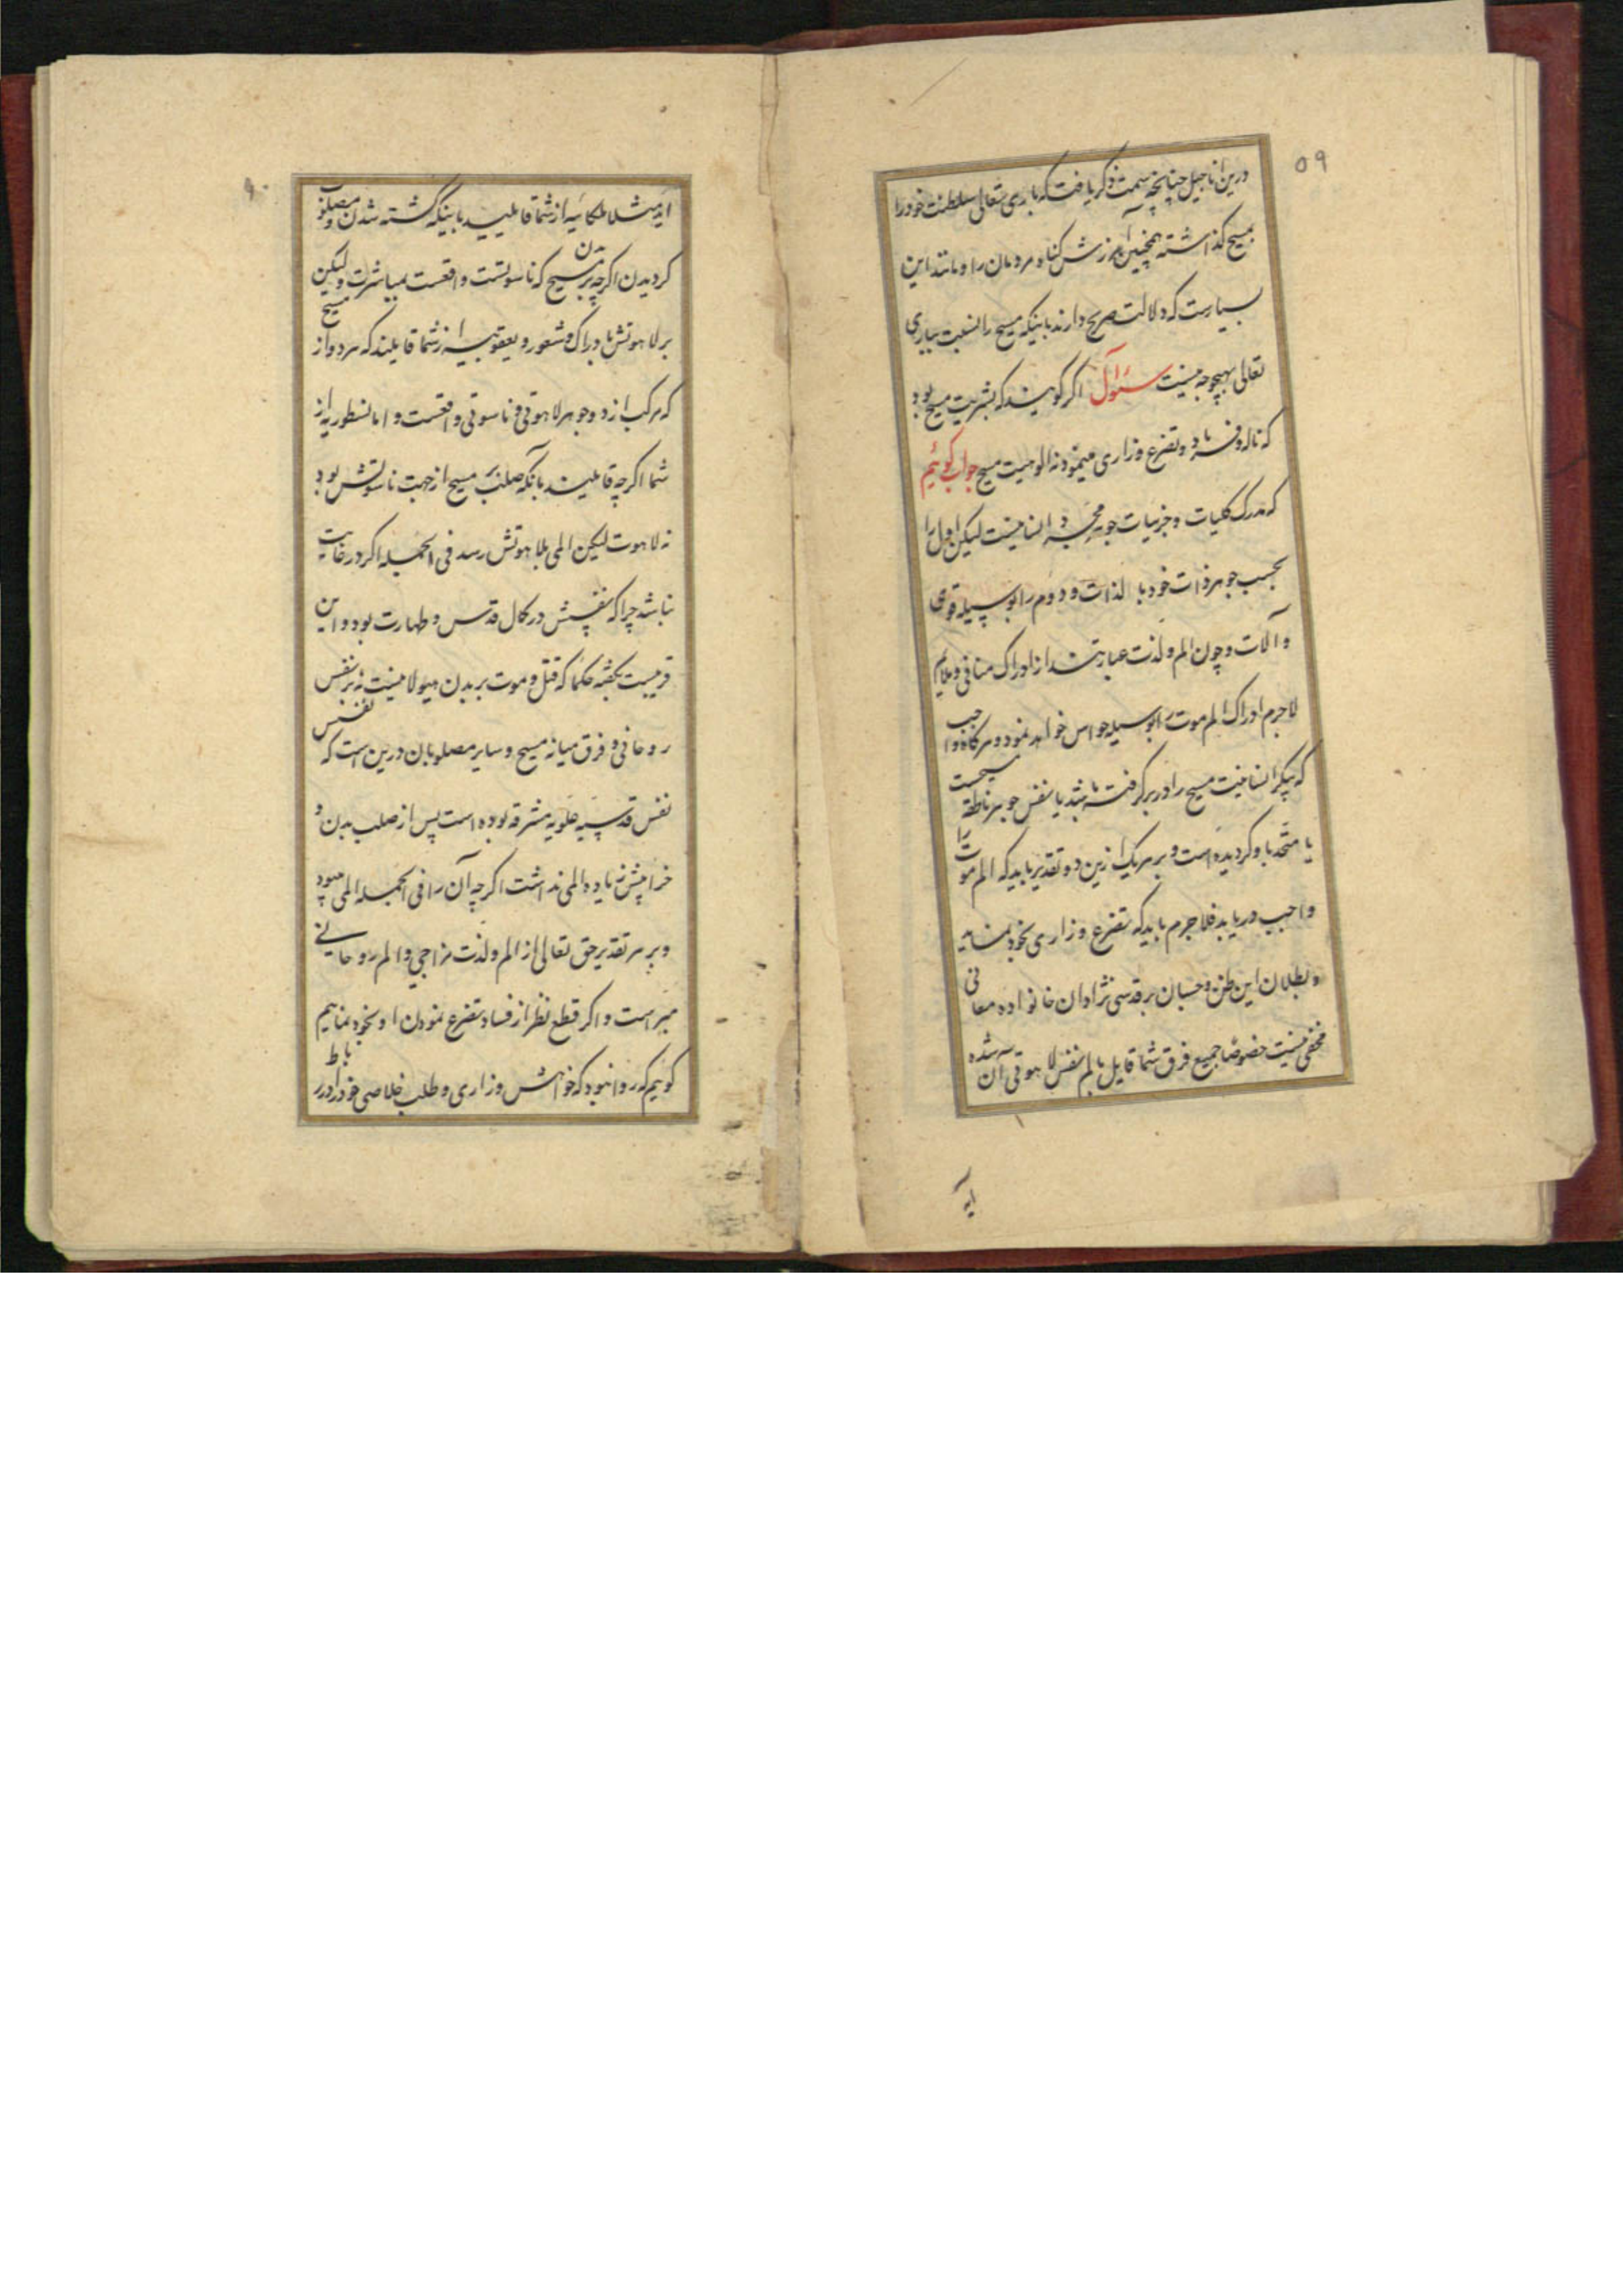 ۵۹
درین اناجیل چنانچه سمت ذکر یافت که باری تعالی سلطنت خود را
بمسیح گذاشته همچنین آمرزش کناه مردمان را و مانند این
بسیارست که دلالت صریح دارند باینکه مسیح را نسبت بباری
تعالی بهیچوجه نیست سئوال اکر کویند که بشریت مسیح بود
که ناله و فریاد و تضرع و زاری مینمود نه الوهیت مسیح جواب کوئیم
که مدرک کلیات و جزییات جوهر مجرد انسانیست لیکن اول را
بحسب جوهر ذات خود بالذات و دوم را بوسیله قوی
و آلات و چون الم و لذت عبارتند از ادراک منافی و ملایم
لاجرم ادراک الم موت را بوسیله حواس خواهد نمود و هرکاه واجب
که پیکر انسانیت مسیح را در بر کرفته باشد یا نفس جوهر ناطقه مسیحست
یا متحد باو کردیده است و بر هر یک ازین دو تقدیر باید که الم موت را
واجب دریابد فلاجرم باید که تضرع و زاری بخود نماید
و بطلان این ظن و حسبان بر قدسی نژادان خانواده معانی
مخفی نیست خصوصا جمیع فرق شما قایل بالم نفس لاهوتی آن شده
اند
اند مثلا ملکائیه از شما قایلیند باینکه کشته شدن و مصلوب
کردیدن اکرچه بر بدن مسیح که ناسوتست واقعست بمباشرت ولیکن
بر لاهوتش بادراک و شعور و یعقوبیه از شما قایلند که مرد و از مسیح
که مرکب از دو جوهر لاهوتی و ناسوتی واقعست و اما نسطوریه از
شما اکرچه قایلیند بآنکه صلب بر مسیح از جهت ناسوتش بود
نه لاهوت لیکن المی بلاهوتش رسد فی الجمله اکر در غایت
نباشد چرا که نفسش در کمال قدس و طهارت بود و این
قریبست بکفته حکما که قتل و موت بر بدن هیولانیست نه بر نفس
روحانی و فرق میانه مسیح و سایر مصلوبان درین است که نفس
نفس قدسیه علویه مشرقه بوده است پس از صلب بدن و
خرابیش زیاده المی نداشت اکرچه آن را فی الجمله المی میبود
و بر هر تقدیر حق تعالی از الم و لذت مزاجی و الم روحانی
مبراست و اکر قطع نظر از فساد تضرع نمودن او بخود نماییم
کوییم که روا نبود که خواهش وزاری و طلب خلاصی خود را در باط
۶۰